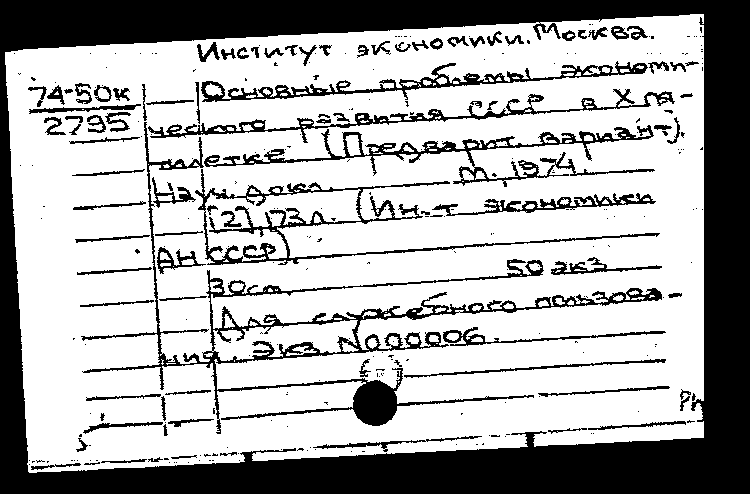 Институт экономики. Москва.
74-50к
2795
Основные проблемы экономи-
ческого развития СССР в X пя-
тилетке. (Предварит. вариант).
Науч. докл. М., 1974.
[2], 173 л. (Ин-т экономики
АН СССР).
30 см. 50 экз
Для служебного пользова-
ния. Экз. N000006.